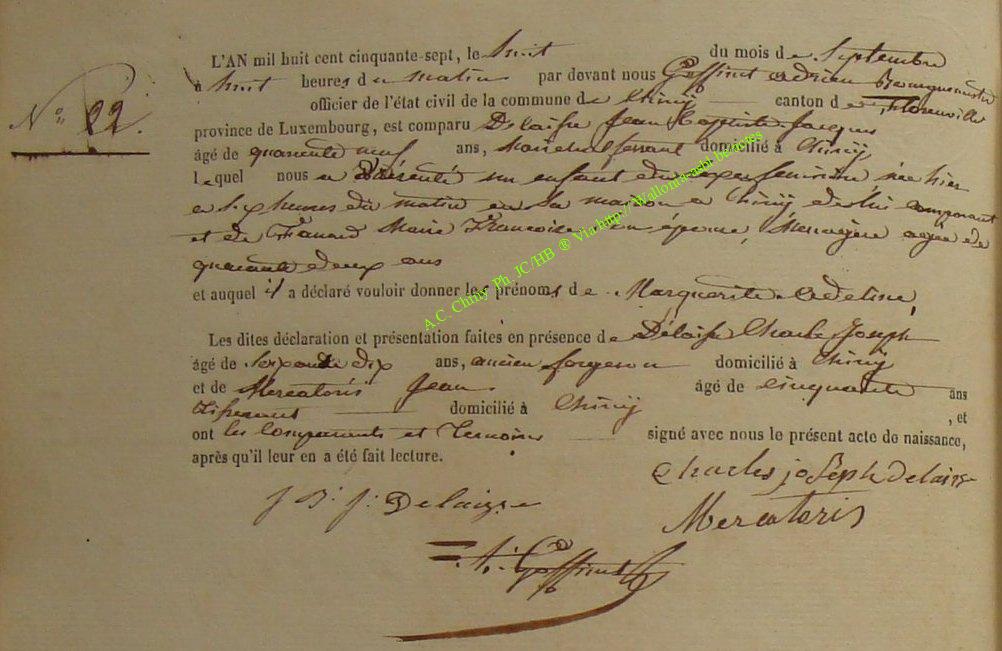 L'AN mil huit cent cinquante-sept, le huit du mois de Septembre
à huit heures du matin par devant nous Goffinet Adrien Bourguemestre
officier de l'état civil de la commune de Chiny canton de Florenville
N° 22.
province de Luxembourg, est comparu Delaisse Jean Baptiste Jacques
âgé de quarante neuf ans, Maréchal ferrant domicilié à Chiny
lequel nous a présenté un enfant du sexe feminin née hier
a six heures du matin en sa maison a Chiny de lui comparant
et de Fanard Marie Françoise son épouse, Menagère agée de
quarante deux ans
et auquel il a déclaré vouloir donner les prénoms de Marguerite Adeline,
Les dites déclaration et présentation faites en présence de Délaisse Charle Joseph
âgé de Soixante dix ans, ancien forgeron domicilié à Chiny
et de Mercatoris Jean âgé de cinquante ans
Tisserant domicilié à Chiny , et
ont les Comparants et Temoins signé avec nous le présent acte de naissance,
après qu'il leur en a été fait lecture.
Charles joseph delaisse
J. B. J. Delaisse
Mercatoris
A. Goffinet
A.C. Chiny Ph. JC/HB ® Via http:// Wallonia-asbl.be/actes